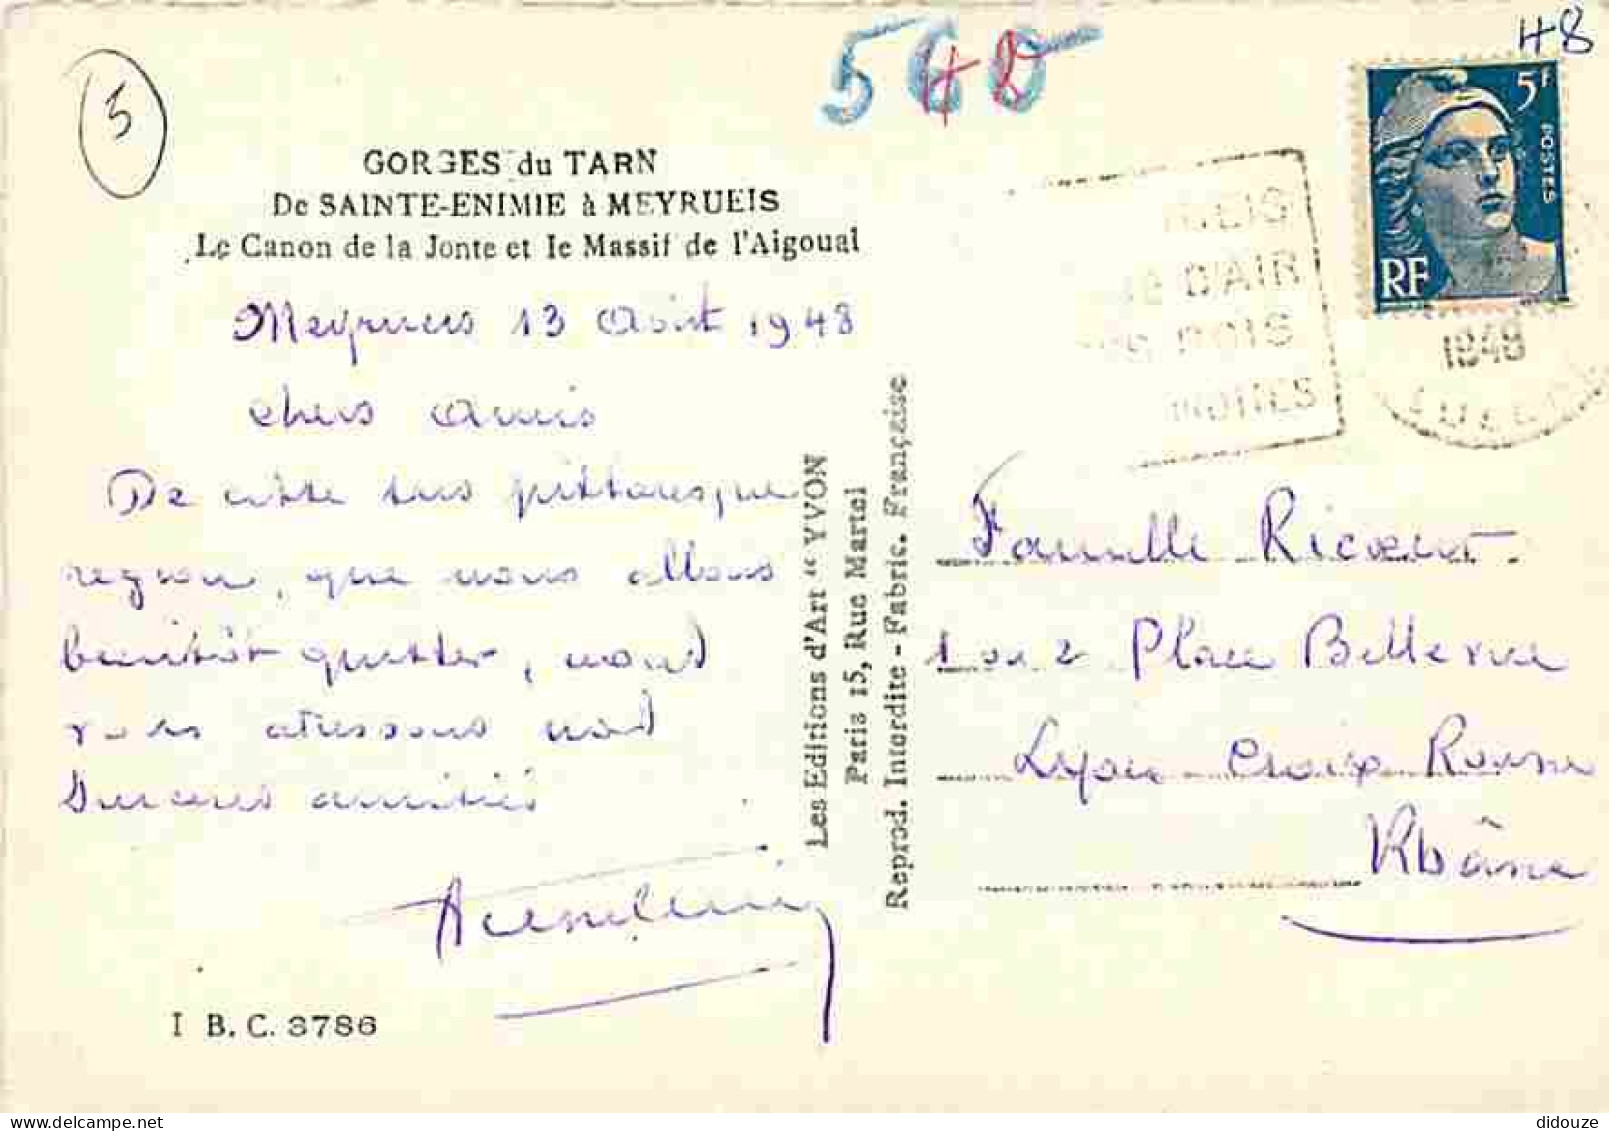 5
560
48
5F
POSTES
RF
GORGES du TARN
De SAINTE-ENIMIE à MEYRUEIS
Le Canon de la Jonte et le Massif de l'Aigoual
D'AIR
1948
LOZERE
Meyrueis 13 Août 1948
chers Amis
De cette très pittoresque
région, que nous allons
bientôt quitter, nous
vous adressons nos
sincères amitiés
I B. C. 3786
Les Editions d'Art "YVON
Paris 15, Rue Martel
Reprod. Interdite - Fabric. Française
Famille
1 ou 2 Place Bellevue
Lyon Croix Rousse
Rhône
didouze
delcampe.net